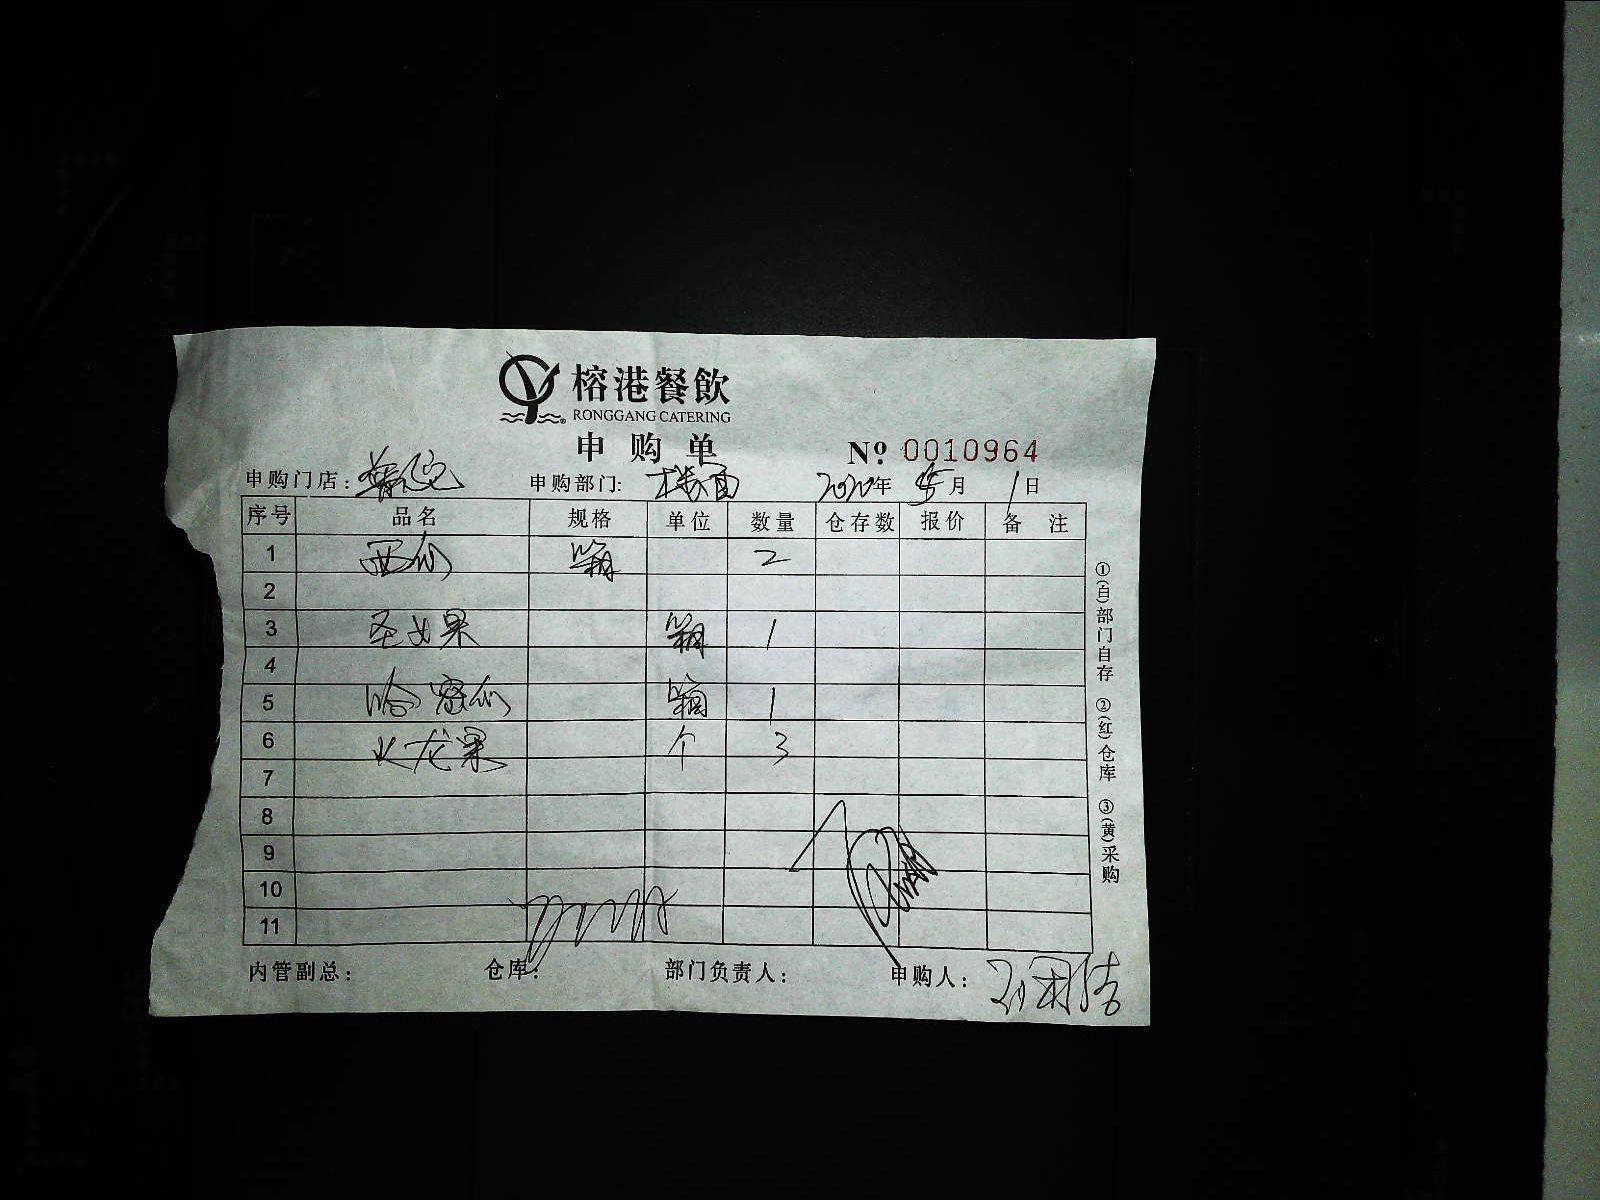 榕港餐飲
RONGGANG CATERING
申购单 Nº 0010964
申购门店： 申购部门: 楼面 2020年 5月 1日
序号 品名 规格 单位 数量 仓存数 报价 备 注
1 西瓜 箱 2
2
3 圣女果 箱 1
4
5 哈密瓜 箱 1
6 火龙果 个 3
7
8
9
10
11
内管副总： 仓库： 部门负责人： 申购人：
①(白)部门自存 ②(红)仓库 ③(黄)采购